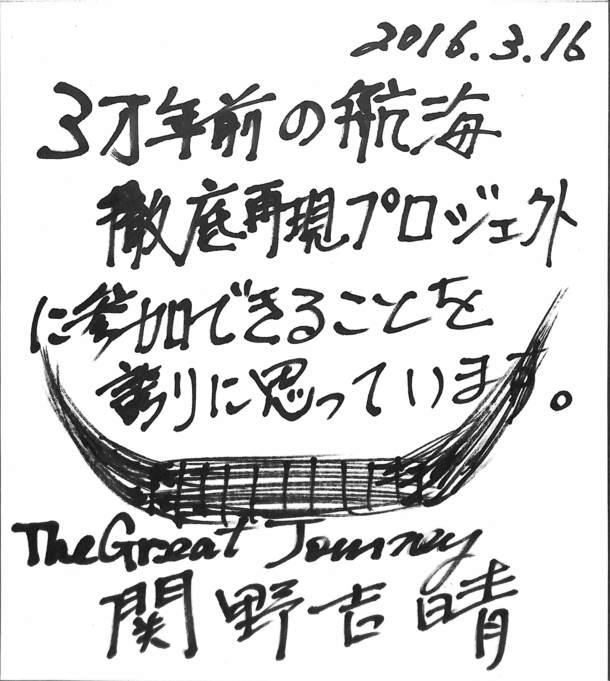 2016.3.16
3万年前の航海
徹底再現プロジェクト
に参加できることを
誇りに思っています。
The Great Journey
関野吉晴